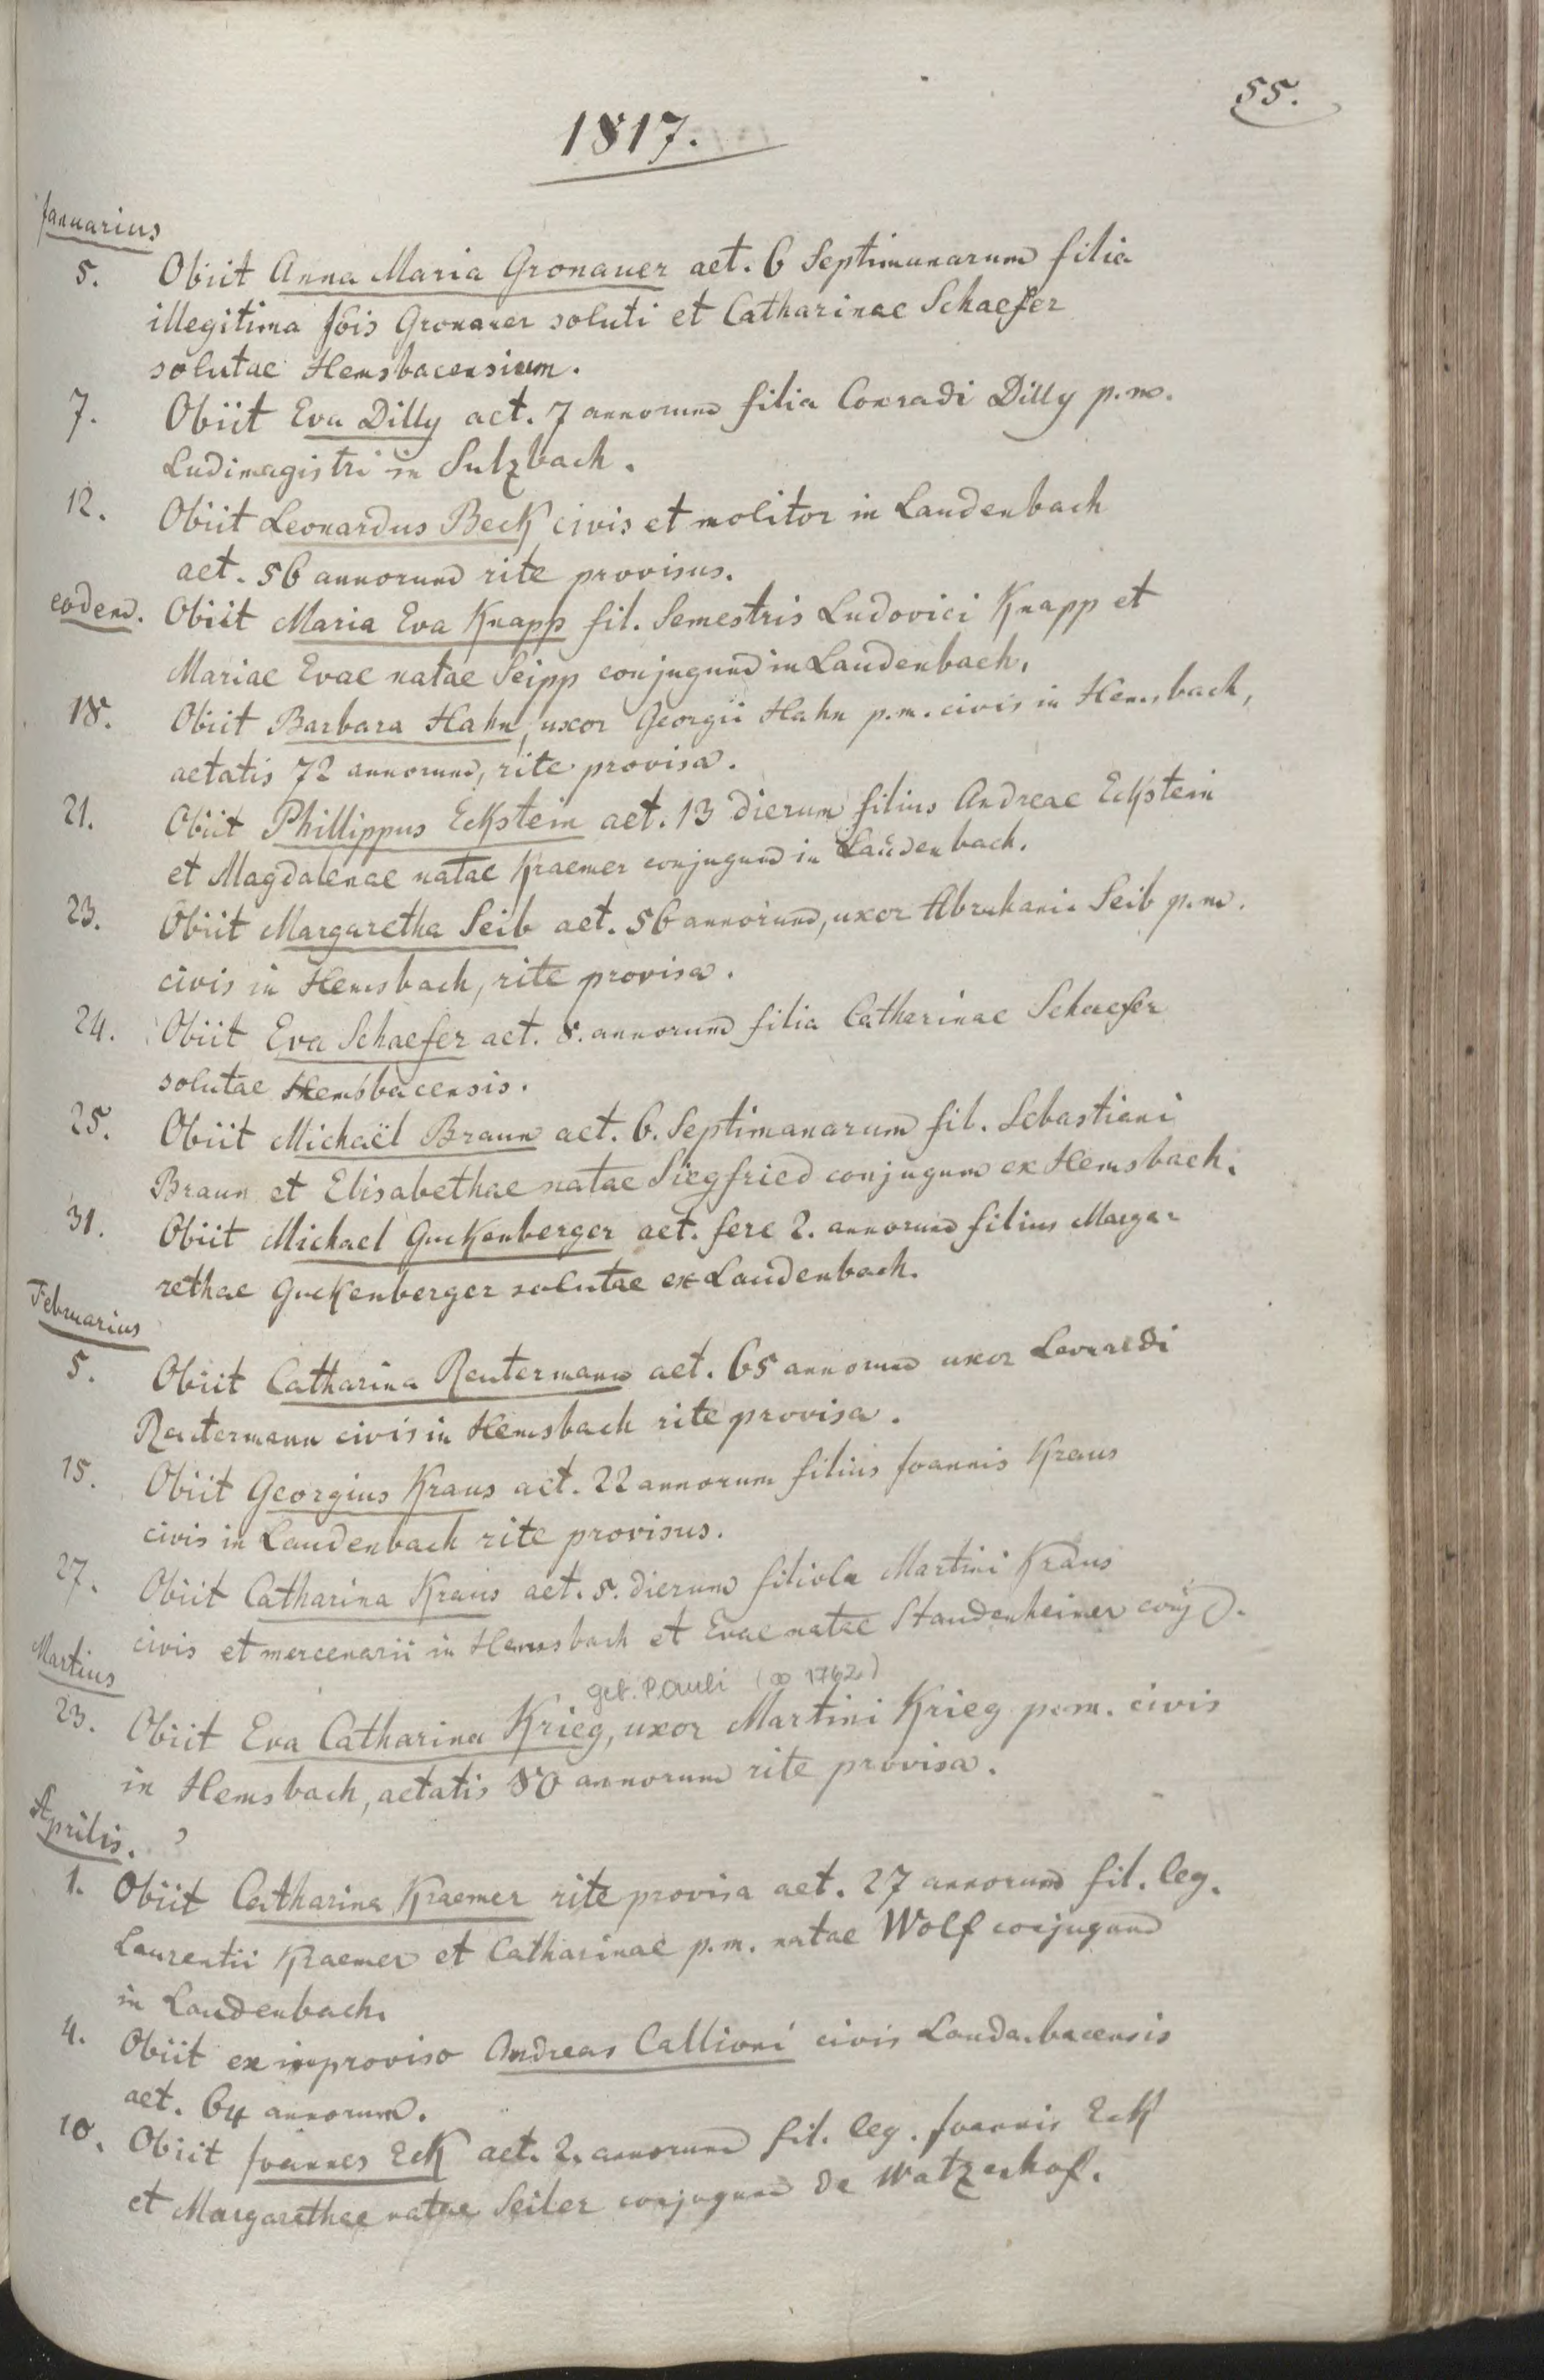 55.
1817.
Januarius
5. Obiit Anna Maria Gronauer aet. 6 Septimanarum filia
illegitima Jois Gronauer soluti et Catharinae Schaefer
solutae Hemsbacensium.
7. Obiit Eva Dilly aet. 7 annorum filia Conradi Dilly p.m.
Ludimagistri in Sulzbach.
12. Obiit Leonardus Beck civis et molitor in Laudenbach
aet. 56 annorum rite provisus.
eodem. Obiit Maria Eva Knapp fil. Semestris Ludovici Knapp et
Mariae Evae natae Seipp conjugum in Laudenbach.
18. Obiit Barbara Hahn, uxor Georgii Hahn p.m. civis in Hemsbach,
aetatis 72 annorum, rite provisa.
21. Obiit Phillippus Eckstein aet. 13 dierum filius Andreae Eckstein
et Magdalenae natae Kraemer conjugum in Laudenbach.
23. Obiit Margaretha Seib aet. 56 annorum, uxor Abrahami Seib p.m.
civis in Hemsbach, rite provisa.
24. Obiit Eva Schaefer aet. 8. annorum filia Catharinae Schaefer
solutae Hemsbacensis.
25. Obiit Michaël Braun aet. 6. Septimanarum fil. Sebastiani
Braun et Elisabethae natae Siegfried conjugum ex Hemsbach.
31. Obiit Michael Guckenberger aet. fere 2. annorum filius Marga-
rethae Guckenberger solutae ex Laudenbach.
Februarius
5. Obiit Catharina Reutermann aet. 65 annorum uxor Leonardi
Reutermann civis in Hemsbach rite provisa.
15. Obiit Georgius Kraus aet. 22 annorum filius Joannis Kraus
civis in Laudenbach rite provisus.
27. Obiit Catharina Kraus aet. 5. dierum filiola Martini Kraus
civis et mercenarii in Hemsbach et Evae natae Staudenheimer conj.
Martius
geb. Pauli (∞ 1762)
23. Obiit Eva Catharina Krieg, uxor Martini Krieg p.m. civis
in Hemsbach, aetatis 80 annorum rite provisa.
Aprilis.
1. Obiit Catharina Kraemer rite provisa aet. 27 annorum fil. leg.
Laurentii Kraemer et Catharinae p.m. natae Wolf conjugum
in Laudenbach.
4. Obiit ex improviso Andreas Callioni civis Laudenbacensis
aet. 64 annorum.
10. Obiit Joannes Eck aet. 2. annorum fil. leg. Joannis Eck
et Margarethae natae Seiler conjugum de Watzenhof.